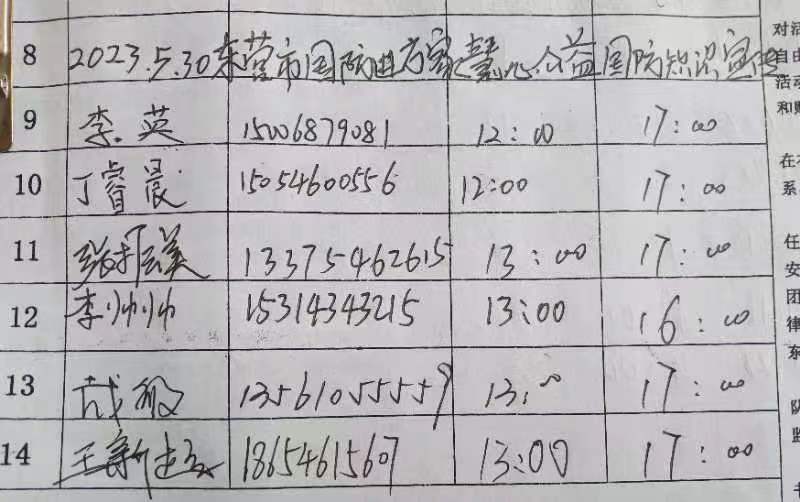 8 2023.5.30东营市国防进万家慧心公益国防知识宣传
9 李英 15006879081 12:00 17:00
10 丁睿晨 15054600556 12:00 17:00
11 13375462615 13:00 17:00
12 李帅帅 15314343215 13:00 16:00
13 13561055559 13:00 17:00
14 王新 18654615607 13:00 17:00
对活
自由
活动
和财
在本
系
任
安
团
律
东
队
监